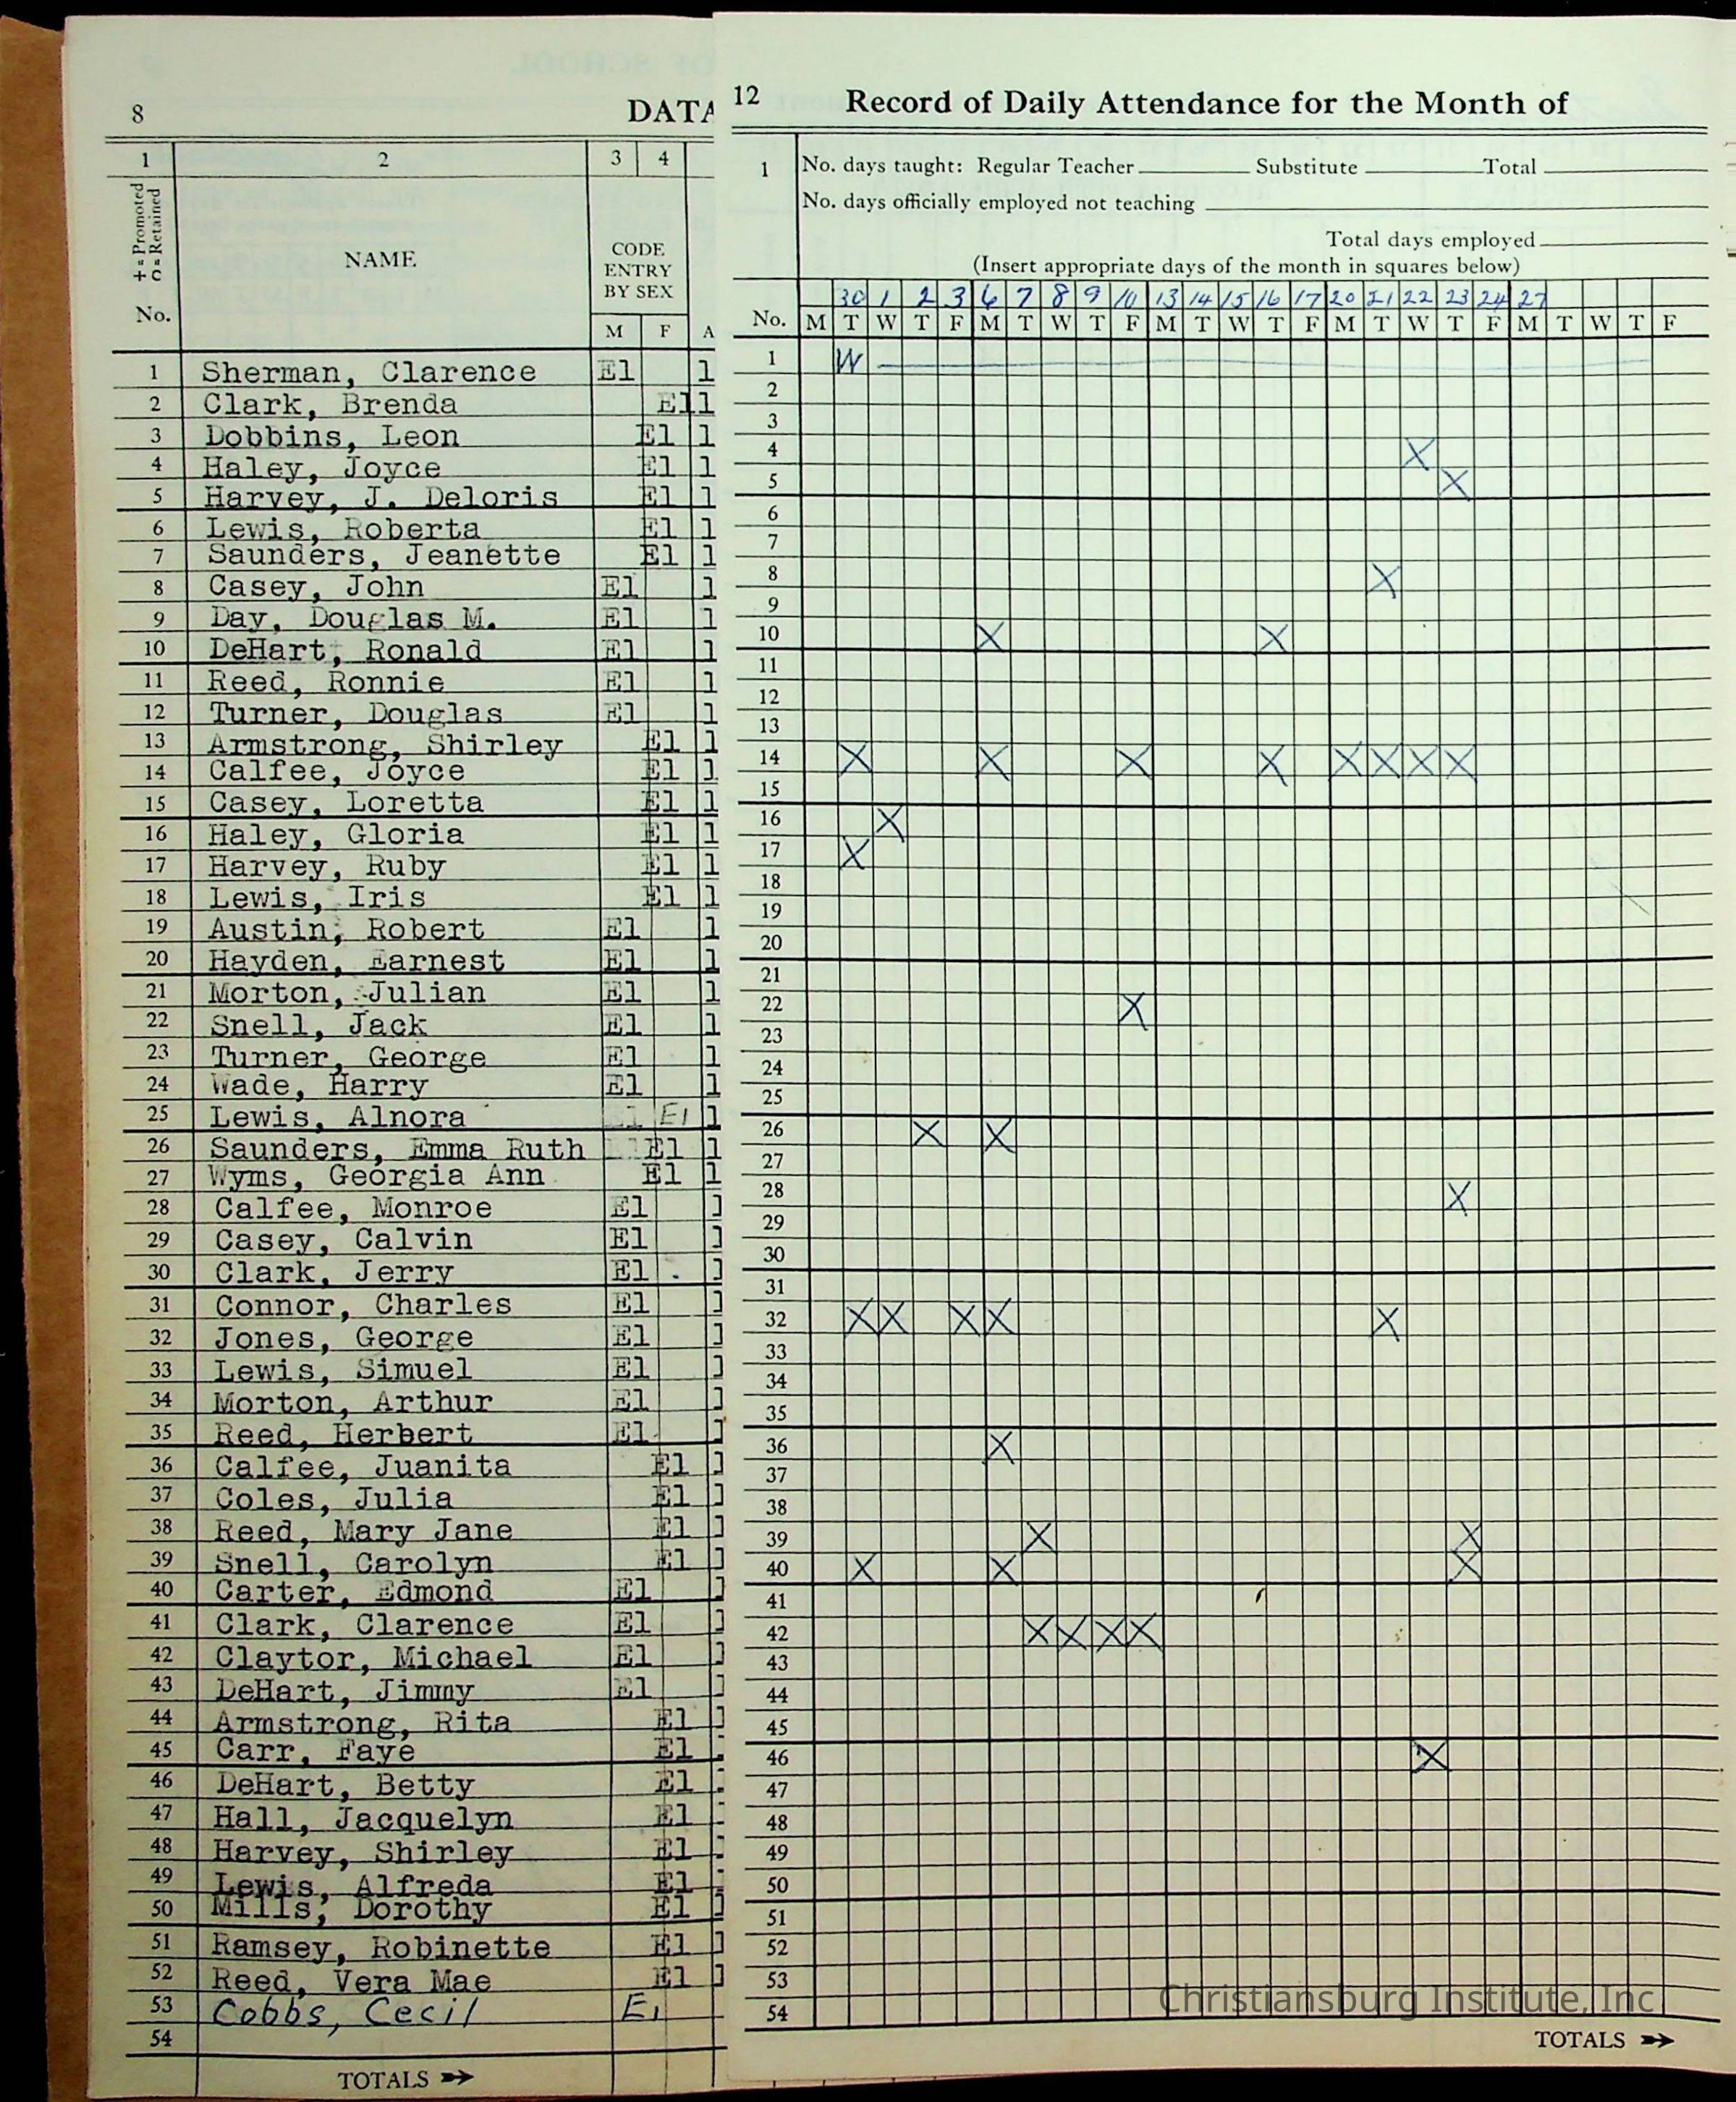 8 DATA
1 2 3 4
+ = Promoted
C = Retained
No.
NAME
CODE
ENTRY
BY SEX
M F A
1 Sherman, Clarence El 1
2 Clark, Brenda El 1
3 Dobbins, Leon El 1
4 Haley, Joyce El 1
5 Harvey, J. Deloris El 1
6 Lewis, Roberta El 1
7 Saunders, Jeanette El 1
8 Casey, John El 1
9 Day, Douglas M. El 1
10 DeHart, Ronald El 1
11 Reed, Ronnie El 1
12 Turner, Douglas El 1
13 Armstrong, Shirley El 1
14 Calfee, Joyce El 1
15 Casey, Loretta El 1
16 Haley, Gloria El 1
17 Harvey, Ruby El 1
18 Lewis, Iris El 1
19 Austin, Robert El 1
20 Hayden, Earnest El 1
21 Morton, Julian El 1
22 Snell, Jack El 1
23 Turner, George El 1
24 Wade, Harry El 1
25 Lewis, Alnora El 1
26 Saunders, Emma Ruth El 1
27 Wyms, Georgia Ann El 1
28 Calfee, Monroe El
29 Casey, Calvin El
30 Clark, Jerry El
31 Connor, Charles El
32 Jones, George El
33 Lewis, Simuel El
34 Morton, Arthur El
35 Reed, Herbert El
36 Calfee, Juanita El
37 Coles, Julia El
38 Reed, Mary Jane El
39 Snell, Carolyn El
40 Carter, Edmond El
41 Clark, Clarence El
42 Claytor, Michael El
43 DeHart, Jimmy El
44 Armstrong, Rita El
45 Carr, Faye El
46 DeHart, Betty El
47 Hall, Jacquelyn El
48 Harvey, Shirley El
49 Lewis, Alfreda El
50 Mills, Dorothy El
51 Ramsey, Robinette El
52 Reed, Vera Mae El
53 Cobbs, Cecil El
54
TOTALS
12 Record of Daily Attendance for the Month of
1 No. days taught: Regular Teacher Substitute Total
No. days officially employed not teaching
Total days employed
(Insert appropriate days of the month in squares below)
30 1 2 3 6 7 8 9 10 13 14 15 16 17 20 21 22 23 24 27
No. M T W T F M T W T F M T W T F M T W T F M T W T F
1 W
2
3
4 X
5 X
6
7
8 X
9
10 X X
11
12
13
14 X X X X X X X X
15
16 X
17 X
18
19
20
21
22 X
23
24
25
26 X X
27
28 X
29
30
31
32 X X X X X
33
34
35
36 X
37
38
39 X X
40 X X X
41
42 X X X X
43
44
45
46 X
47
48
49
50
51
52
53
54
Christiansburg Institute, Inc
TOTALS